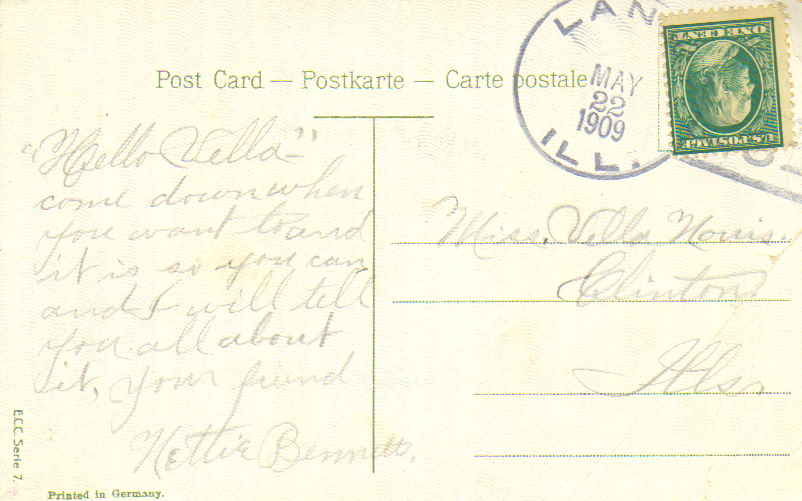 Post Card — Postkarte — Carte postale
LAN
MAY
22
1909
ILL.
ONE CENT
U.S. POSTAGE
"Hello Vella-"
come down when
you want to and
it is so you can
and I will tell
you all about
it, your friend
Nettie Bennett.
Miss. Vella
Clinton
Ills,
E.C.C. Serie 7.
Printed in Germany.